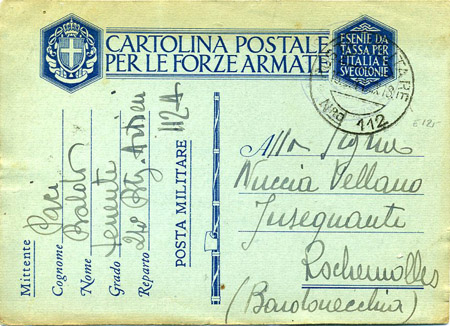 CARTOLINA POSTALE
PER LE FORZE ARMATE
ESENTE DA
TASSA PER
L'ITALIA E
SVE COLONIE
Nº 112
€125
Mittente
Cognome Paci
Nome Baldo
Grado Tenente
Reparto 24º Btg. Artieri
POSTA MILITARE 112 A
Alla Sig.na
Nuccia Vellano
Insegnante
Rochemolles
(Bardonecchia)